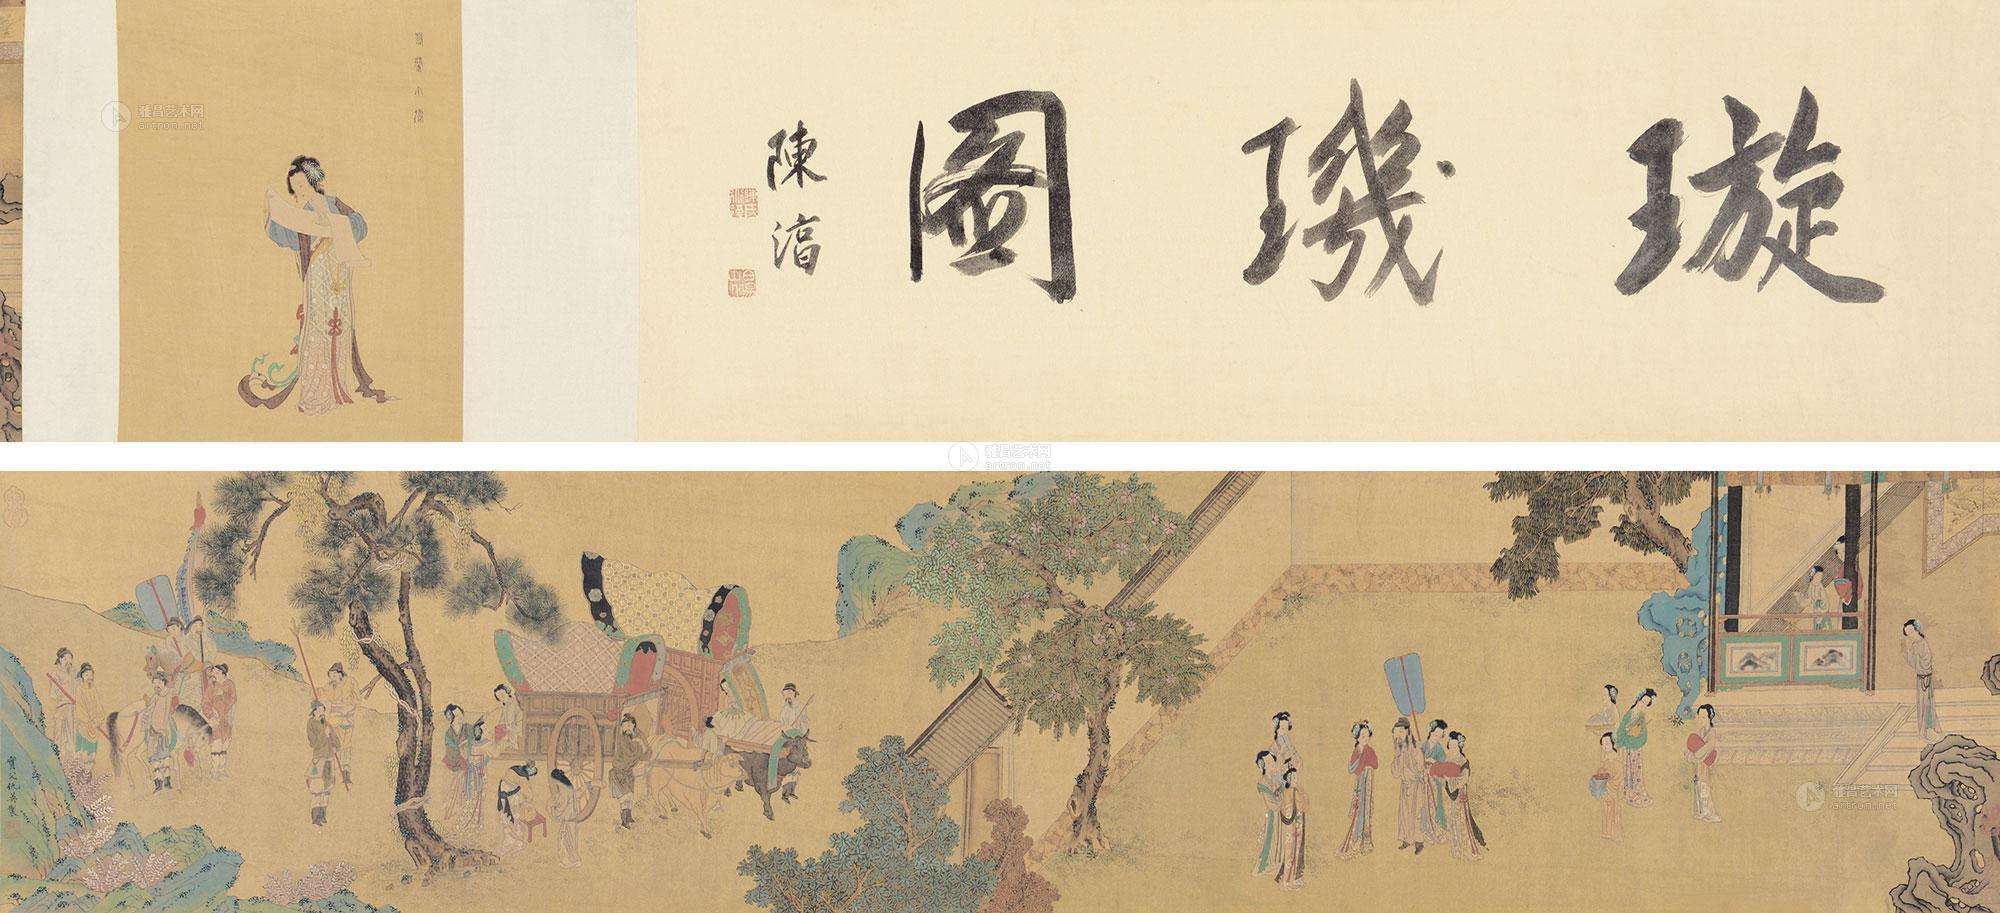 璇璣圖
陳湻
若蘭小像
實父仇英製
雅昌艺术网
artron.net
雅昌艺术网
artron.net
雅昌艺术网
artron.net